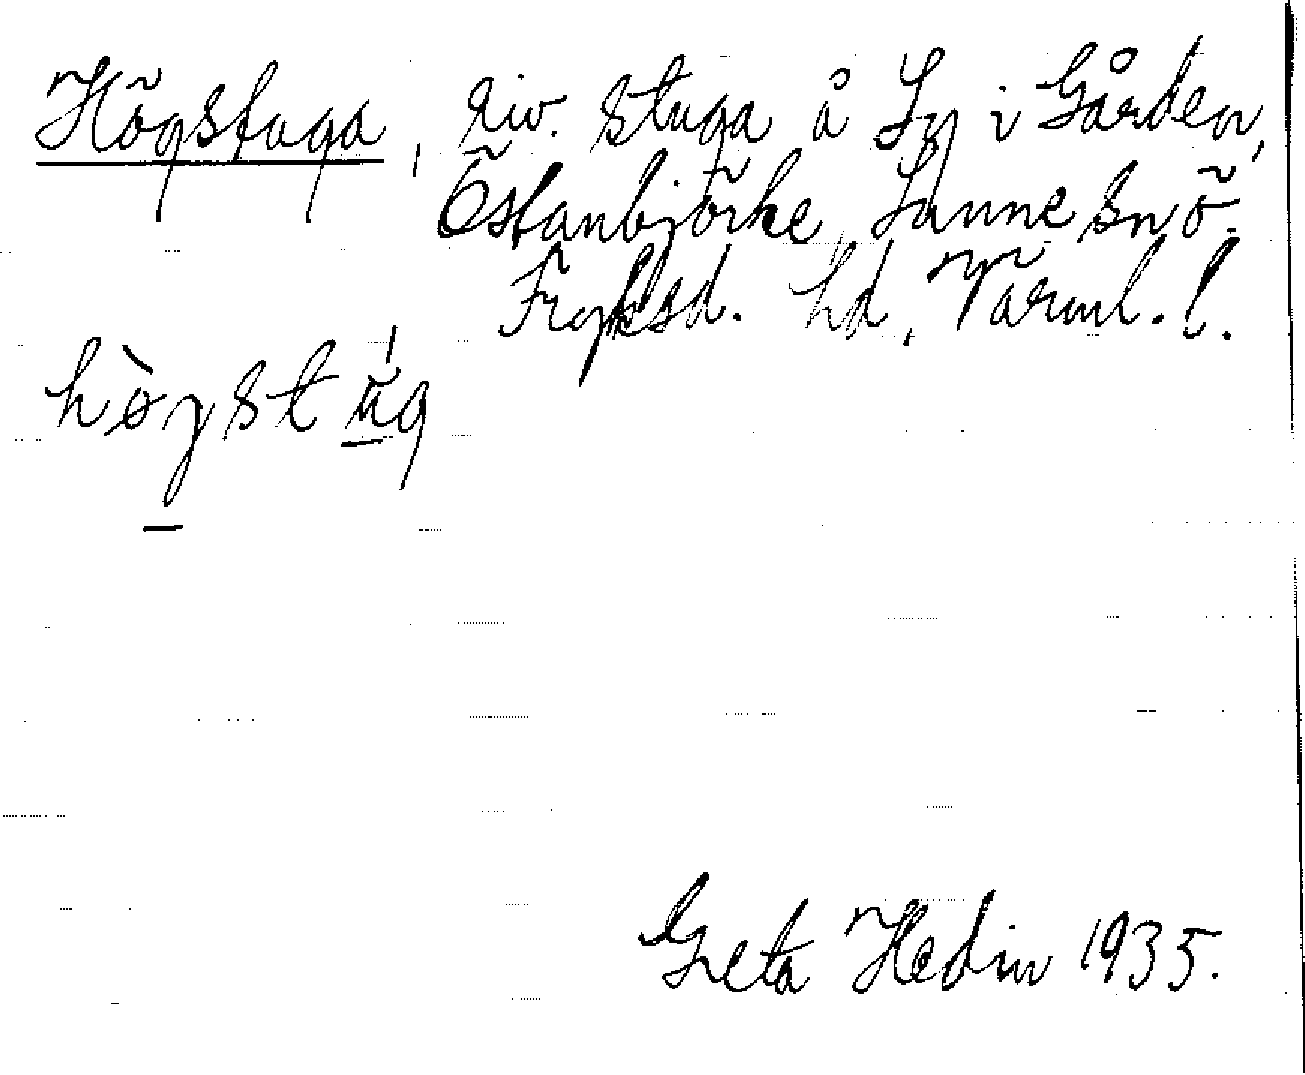 Högstuga, riv. stuga å Ly i Gården,
Östanbjörke, Sunne sn ö.
Fryksd. hd, Värml. l.
hògstúg
Greta Hedin 1935.